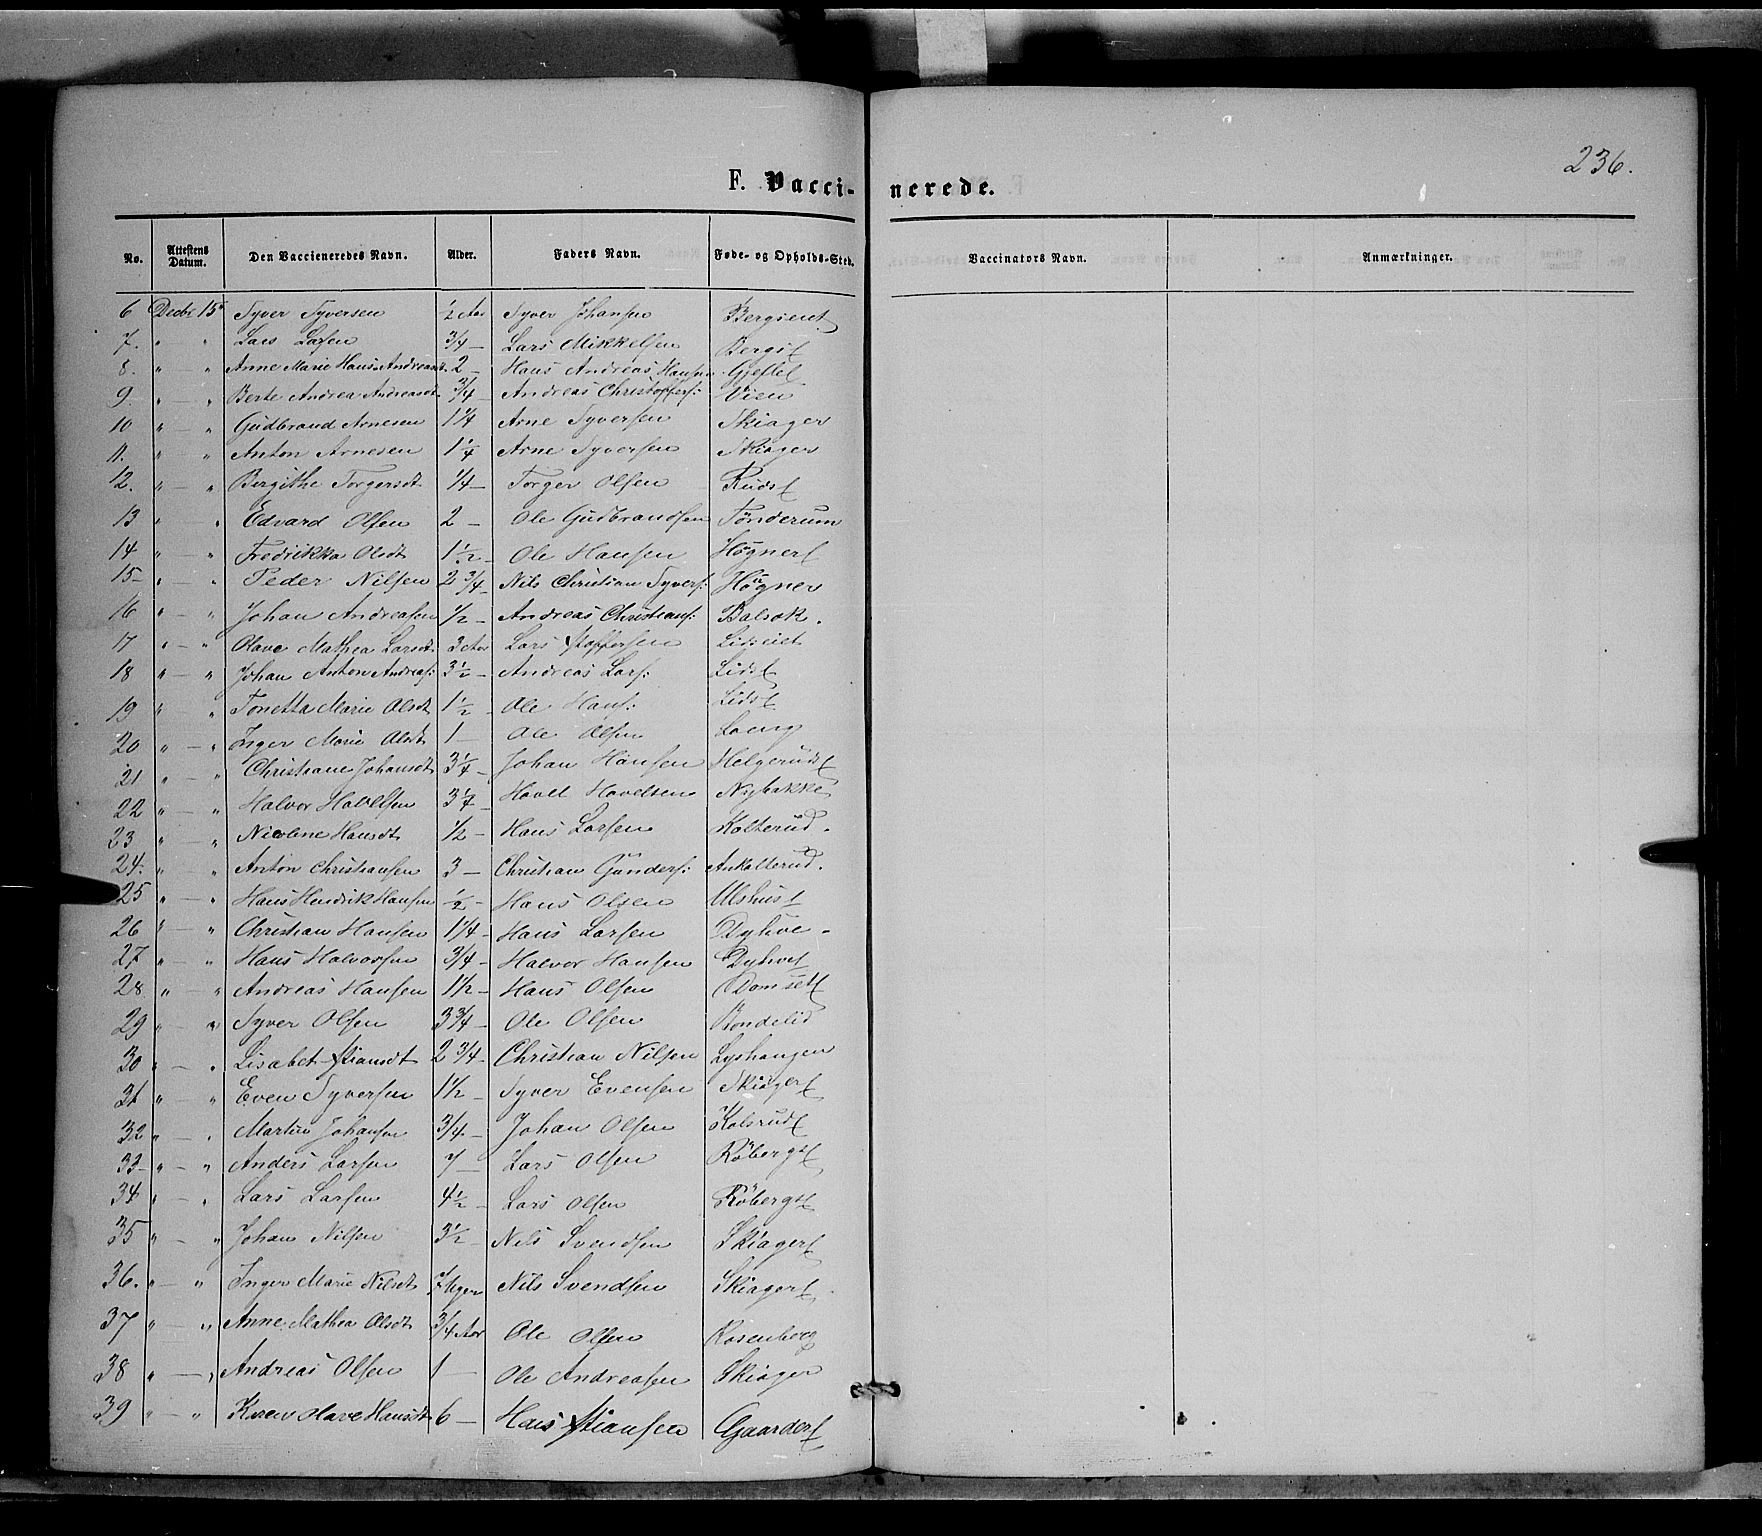 236.
F. Vacci-nerede.
No. Attestens Datum. Den Vaccieneredes Navn. Alder. Faders Navn. Føde- og Opholds-Sted. Vaccinators Navn. Anmærkninger.
6 Decbr 15 Syver Syversen ½ Aar Syver Johansen Bergseiet
7. " — " Lars Larsen ¾ — Lars Mikkelsen
8. " — " Anne Marie Hans Andreasdt 2 — Hans Andreas Hansen
9. " — " Berte Andrea Andreasdt ¾ Andreas Christoffers: Vien
10 " — " Gudbrand Arnesen 1¼ Arne Syversen Skiager
11. " — " Anton Arnesen 1¼ Arne Syversen Skiager
12. " — " Bergithe Torgersdt ¼ — Torger Olsen
13 " " Edvard Olsen 2 — Ole Gudbrandsen Tönderum
14 " — " Fredrikka Olsdt 1½ — Ole Hansen
15 — " — " Peder Nilsen 2¾ — Nils Christian Syvers: Högner
16 " — " Johan Andreasen ½ — Andreas Christians: Balsok.
17 " — " Olave Mathea Larsdt. 3 Aar Lars Xstoffersen Lidseiet
18 " — " Johan Anton Andreas: 3½ — Andreas Lars:
19 " " Tonetta Marie Olsdt 1½ — Ole Hans:
20 " — " Inger Marie Olsdt 1 — Ole Olsen Loeng
21 " — " Christiane Johansdt 3¼ — Johan Hansen
22 " — " Halvor Havelsen 3¼ — Havel Havelsen Nybakke
23 " — " Nicoline Hansdt ½ — Hans Larsen Kolterud.
24. " " Anton Christiansen 3 — Christian Gunders: Ankolterud.
25 " — " Hans Hendrik Hansen ½ — Hans Olsen
26 " — " Christian Hansen 1¼ — Hans Larsen Dyhve.
27 " — " Hans Halvorsen ¾ — Halvor Hansen
28 " — " Andreas Hansen 1½ — Hans Olsen
29 " — " Syver Olsen 3¾ — Ole Olsen Bondelid
30 " — " Lisabet Xstiansdt 2¾ — Christian Nilsen Lyshaugen
31 " — " Even Syversen 1½ — Syver Evensen
32 " — " Martin Johansen ¾ — Johan Olsen
33 — " — " Anders Larsen 7 — Lars Olsen
34 " — " Lars Larsen 4½ — Lars Olsen
35 " — " Johan Nilsen 3½ — Nils Svendsen
36. " — " Inger Marie Nilsdt Nils Svendsen
37 " — " Anne Mathea Olsdt ¾ Aar Ole Olsen Rosenberg
38 " — " Andreas Olsen 1 — Ole Andreasen Skiager
39 " — " Karen Olave Hansdt 6 — Hans Xstiansen